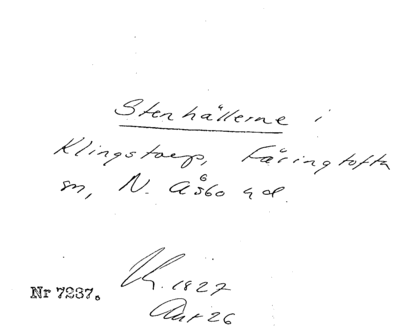 Stenhällerne i
Klingstorp, Färingtofta
sn, N. Åsbo hd.
Nr 7237.
1827
26